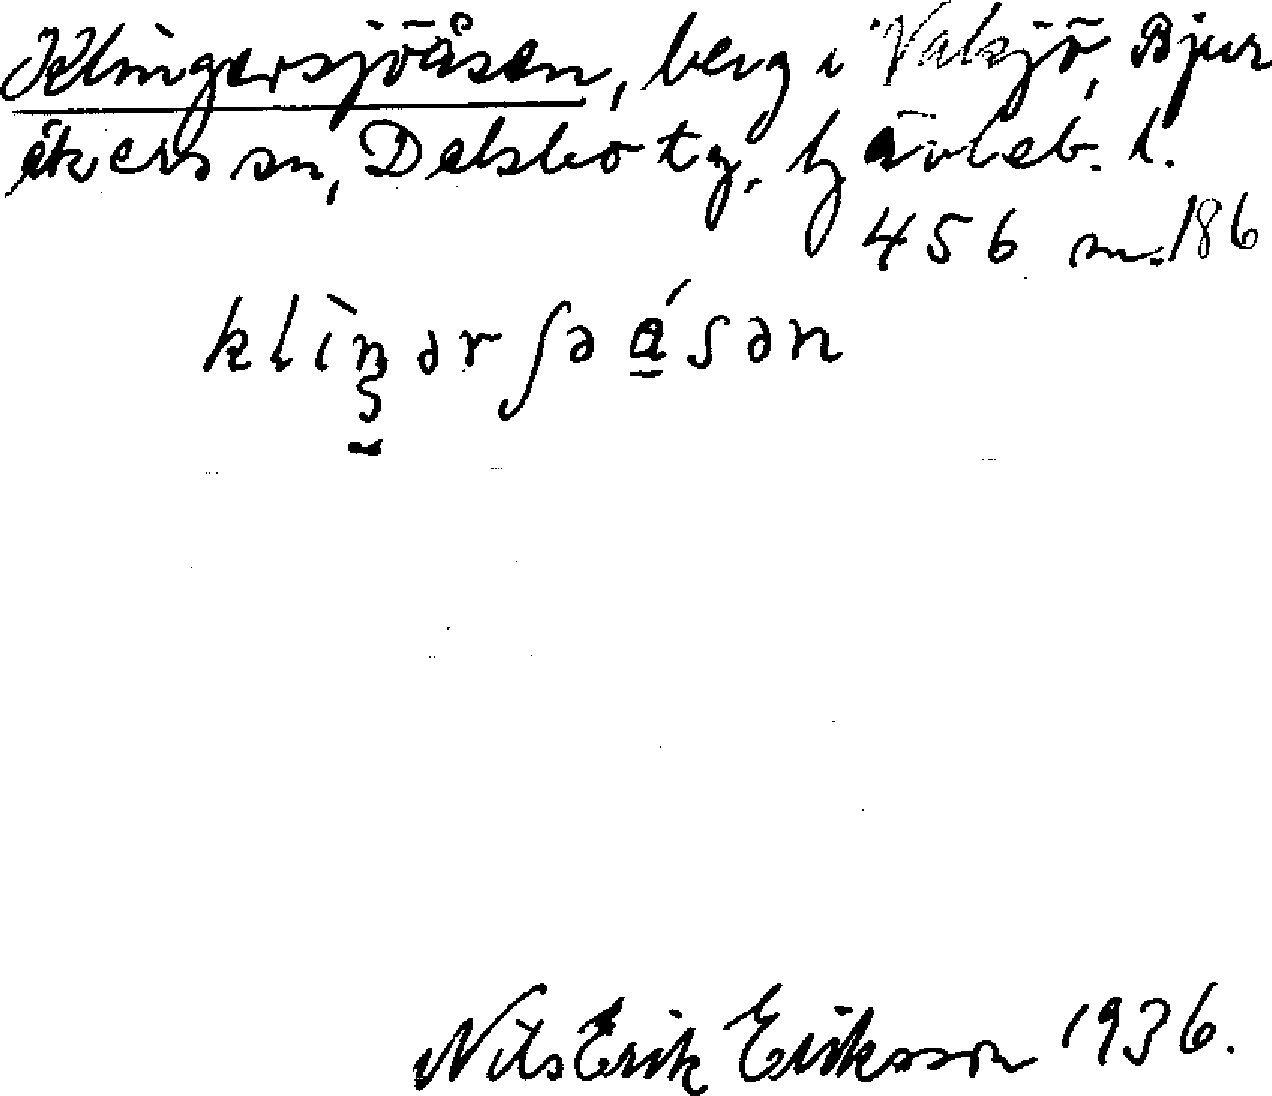 Klingersjöåsen, berg i Valsjö, Bjur
åkers sn, Delsbo tg, Gävleb. l.
456 m. 186
klìŋərʃəåsən
Nils Erik Eriksson 1936.